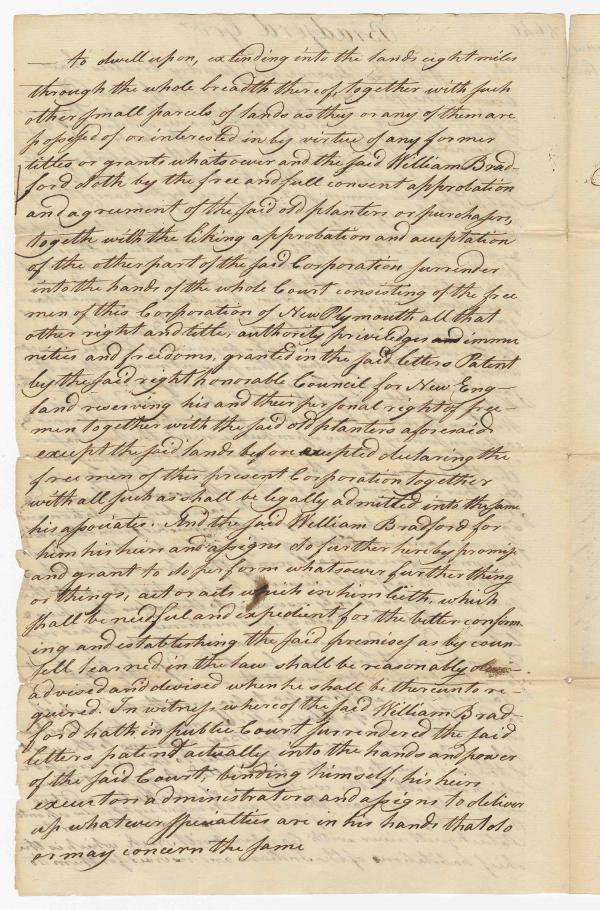 to dwell upon, extending into the lands eight miles
through the whole breadth thereof, together with such
other small parcels of lands as they or any of them are
possessed of or interested in by virtue of any former
titles or grants whatsoever and the said William Brad-
ford doth by the free and full consent approbation
and agreement of the said old planters or purchasers,
togeth with the liking approbation and aceptation
of the other part of the said Corporation surrender
into the hands of the whole Court consisting of the free
men of this Corporation of New Plymouth all that
other right and title, authority priviledges and immu
nities and freedoms, granted in the said letters Patent
by the said right honorable Council for New Eng-
land reserving his and their personal right of free-
men together with the said old planters aforesaid
except the said lands before excepted declaring the
freemen of this present Corporation together
with all such as shall be legally admitted into the same
his associates. And the said William Bradford for
him his heirs and assigns do further hereby promise
and grant to do perform whatsoever further thing
or things, act or acts which in him lieth, which
shall be needful and expedient for the better confirm
ing and establishing the said premises as by coun-
sell learned in the law shall be reasonably
advised and devised when he shall be thereunto re-
quired. In witness whereof the said William Brad-
ford hath in public Court surrendered the said
letters patend actually into the hands and power
of the said Court, binding himself, his heirs
executors administrators and assigns to deliver
up whatever specialties are in his hands that do
or may concern the same